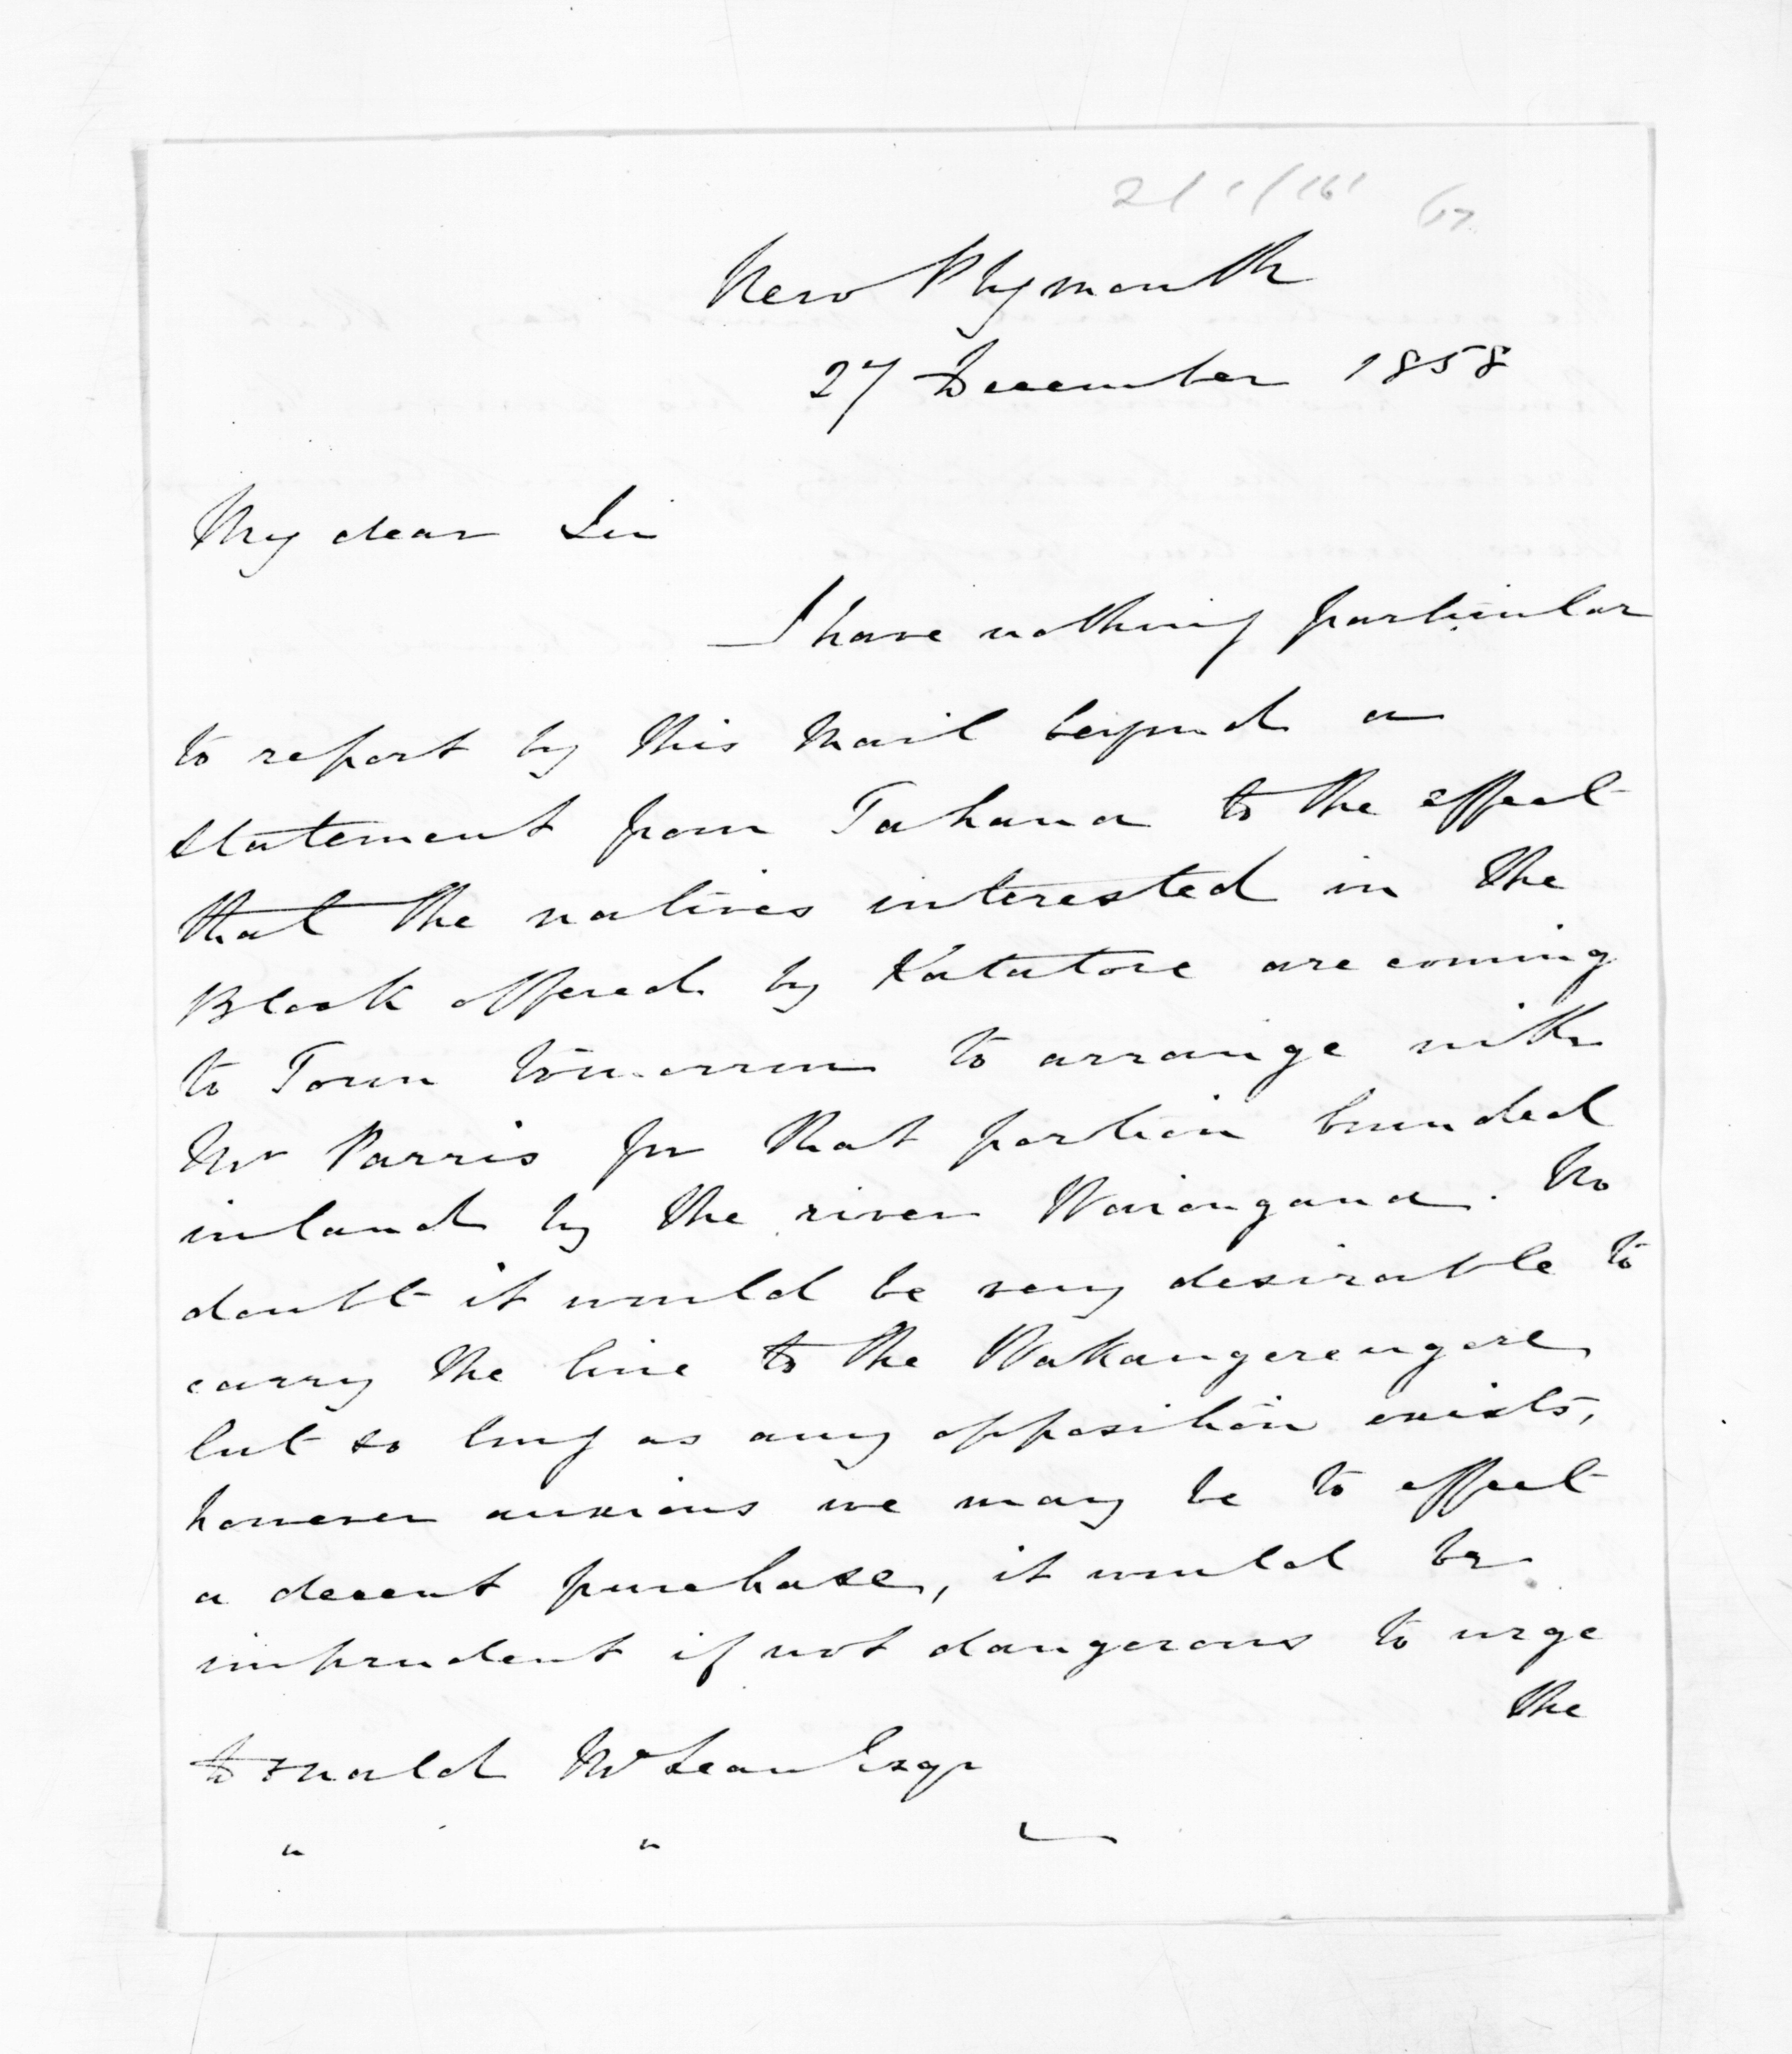 New Plymouth
27 December 1858
My dear Sir
I have nothing particular
to report by this Mail beyond a
statement from Tahana to the effect
that the natives interested in the
Block offered by Katatore are coming
to Town tomorrow to arrange with
Mr Parris for that portion bounded
inland by the river Waiongana. No
doubt it would be very desirable to
carry the line to the Wakangerengere
but so long as any opposition exists,
however anxious we may be to effect
a decent purchase, it would be
imprudent if not dangerous to urge
the
Donald McLean Esqr
" "